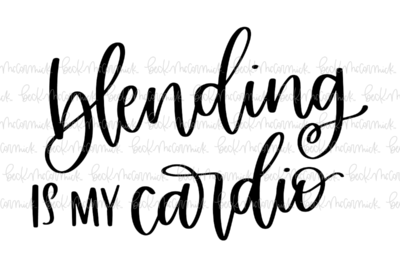 blending
IS MY cardio